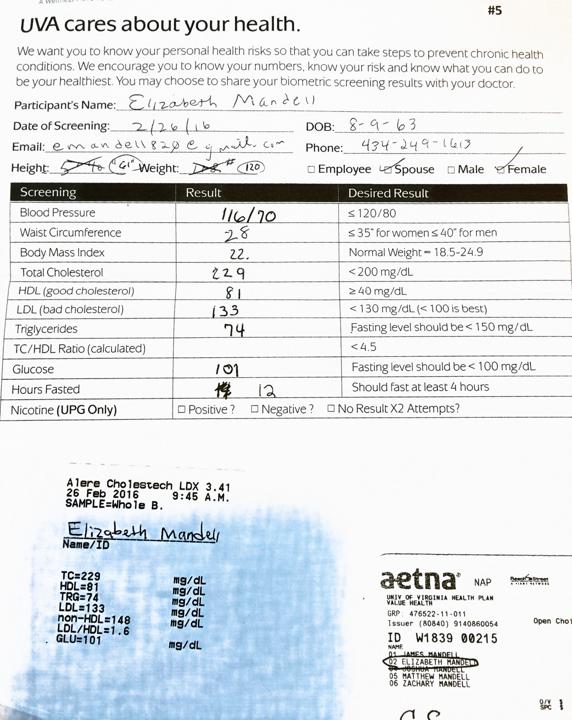 #5
UVA cares about your health.
We want you to know your personal health risks so that you can take steps to prevent chronic health
conditions. We encourage you to know your numbers, know your risk and know what you can do to
be your healthiest. You may choose to share your biometric screening results with your doctor.
Participant's Name: Elizabeth Mandell
Date of Screening: 2/26/16 DOB: 8-9-63
Email: emandell820@gmail.com Phone: 434-249-1613
Height: 61" Weight: # 120 □ Employee ☑ Spouse □ Male ☑ Female
Screening Result Desired Result
Blood Pressure 116/70 ≤ 120/80
Waist Circumference 28 ≤ 35" for women ≤ 40" for men
Body Mass Index 22. Normal Weight = 18.5-24.9
Total Cholesterol 229 < 200 mg/dL
HDL (good cholesterol) 81 ≥ 40 mg/dL
LDL (bad cholesterol) 133 < 130 mg/dL (< 100 is best)
Triglycerides 74 Fasting level should be < 150 mg/dL
TC/HDL Ratio (calculated) < 4.5
Glucose 101 Fasting level should be < 100 mg/dL
Hours Fasted 12 Should fast at least 4 hours
Nicotine (UPG Only) □ Positive ? □ Negative ? □ No Result X2 Attempts?
Alere Cholestech LDX 3.41
26 Feb 2016 9:45 A.M.
SAMPLE=Whole B.
Elizabeth Mandell
Name/ID
TC=229 mg/dL
HDL=81 mg/dL
TRG=74 mg/dL
LDL=133 mg/dL
non-HDL=148 mg/dL
LDL/HDL=1.6
GLU=101 mg/dL
aetna NAP
UNIV OF VIRGINIA HEALTH PLAN
VALUE HEALTH
GRP: 476522-11-011
Issuer (80840) 9140860054
Open Cho
ID W1839 00215
NAME
01 JAMES MANDELL
02 ELIZABETH MANDELL
04 JOSHUA MANDELL
05 MATTHEW MANDELL
06 ZACHARY MANDELL
O/V
SPC